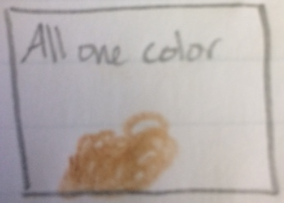 All one color